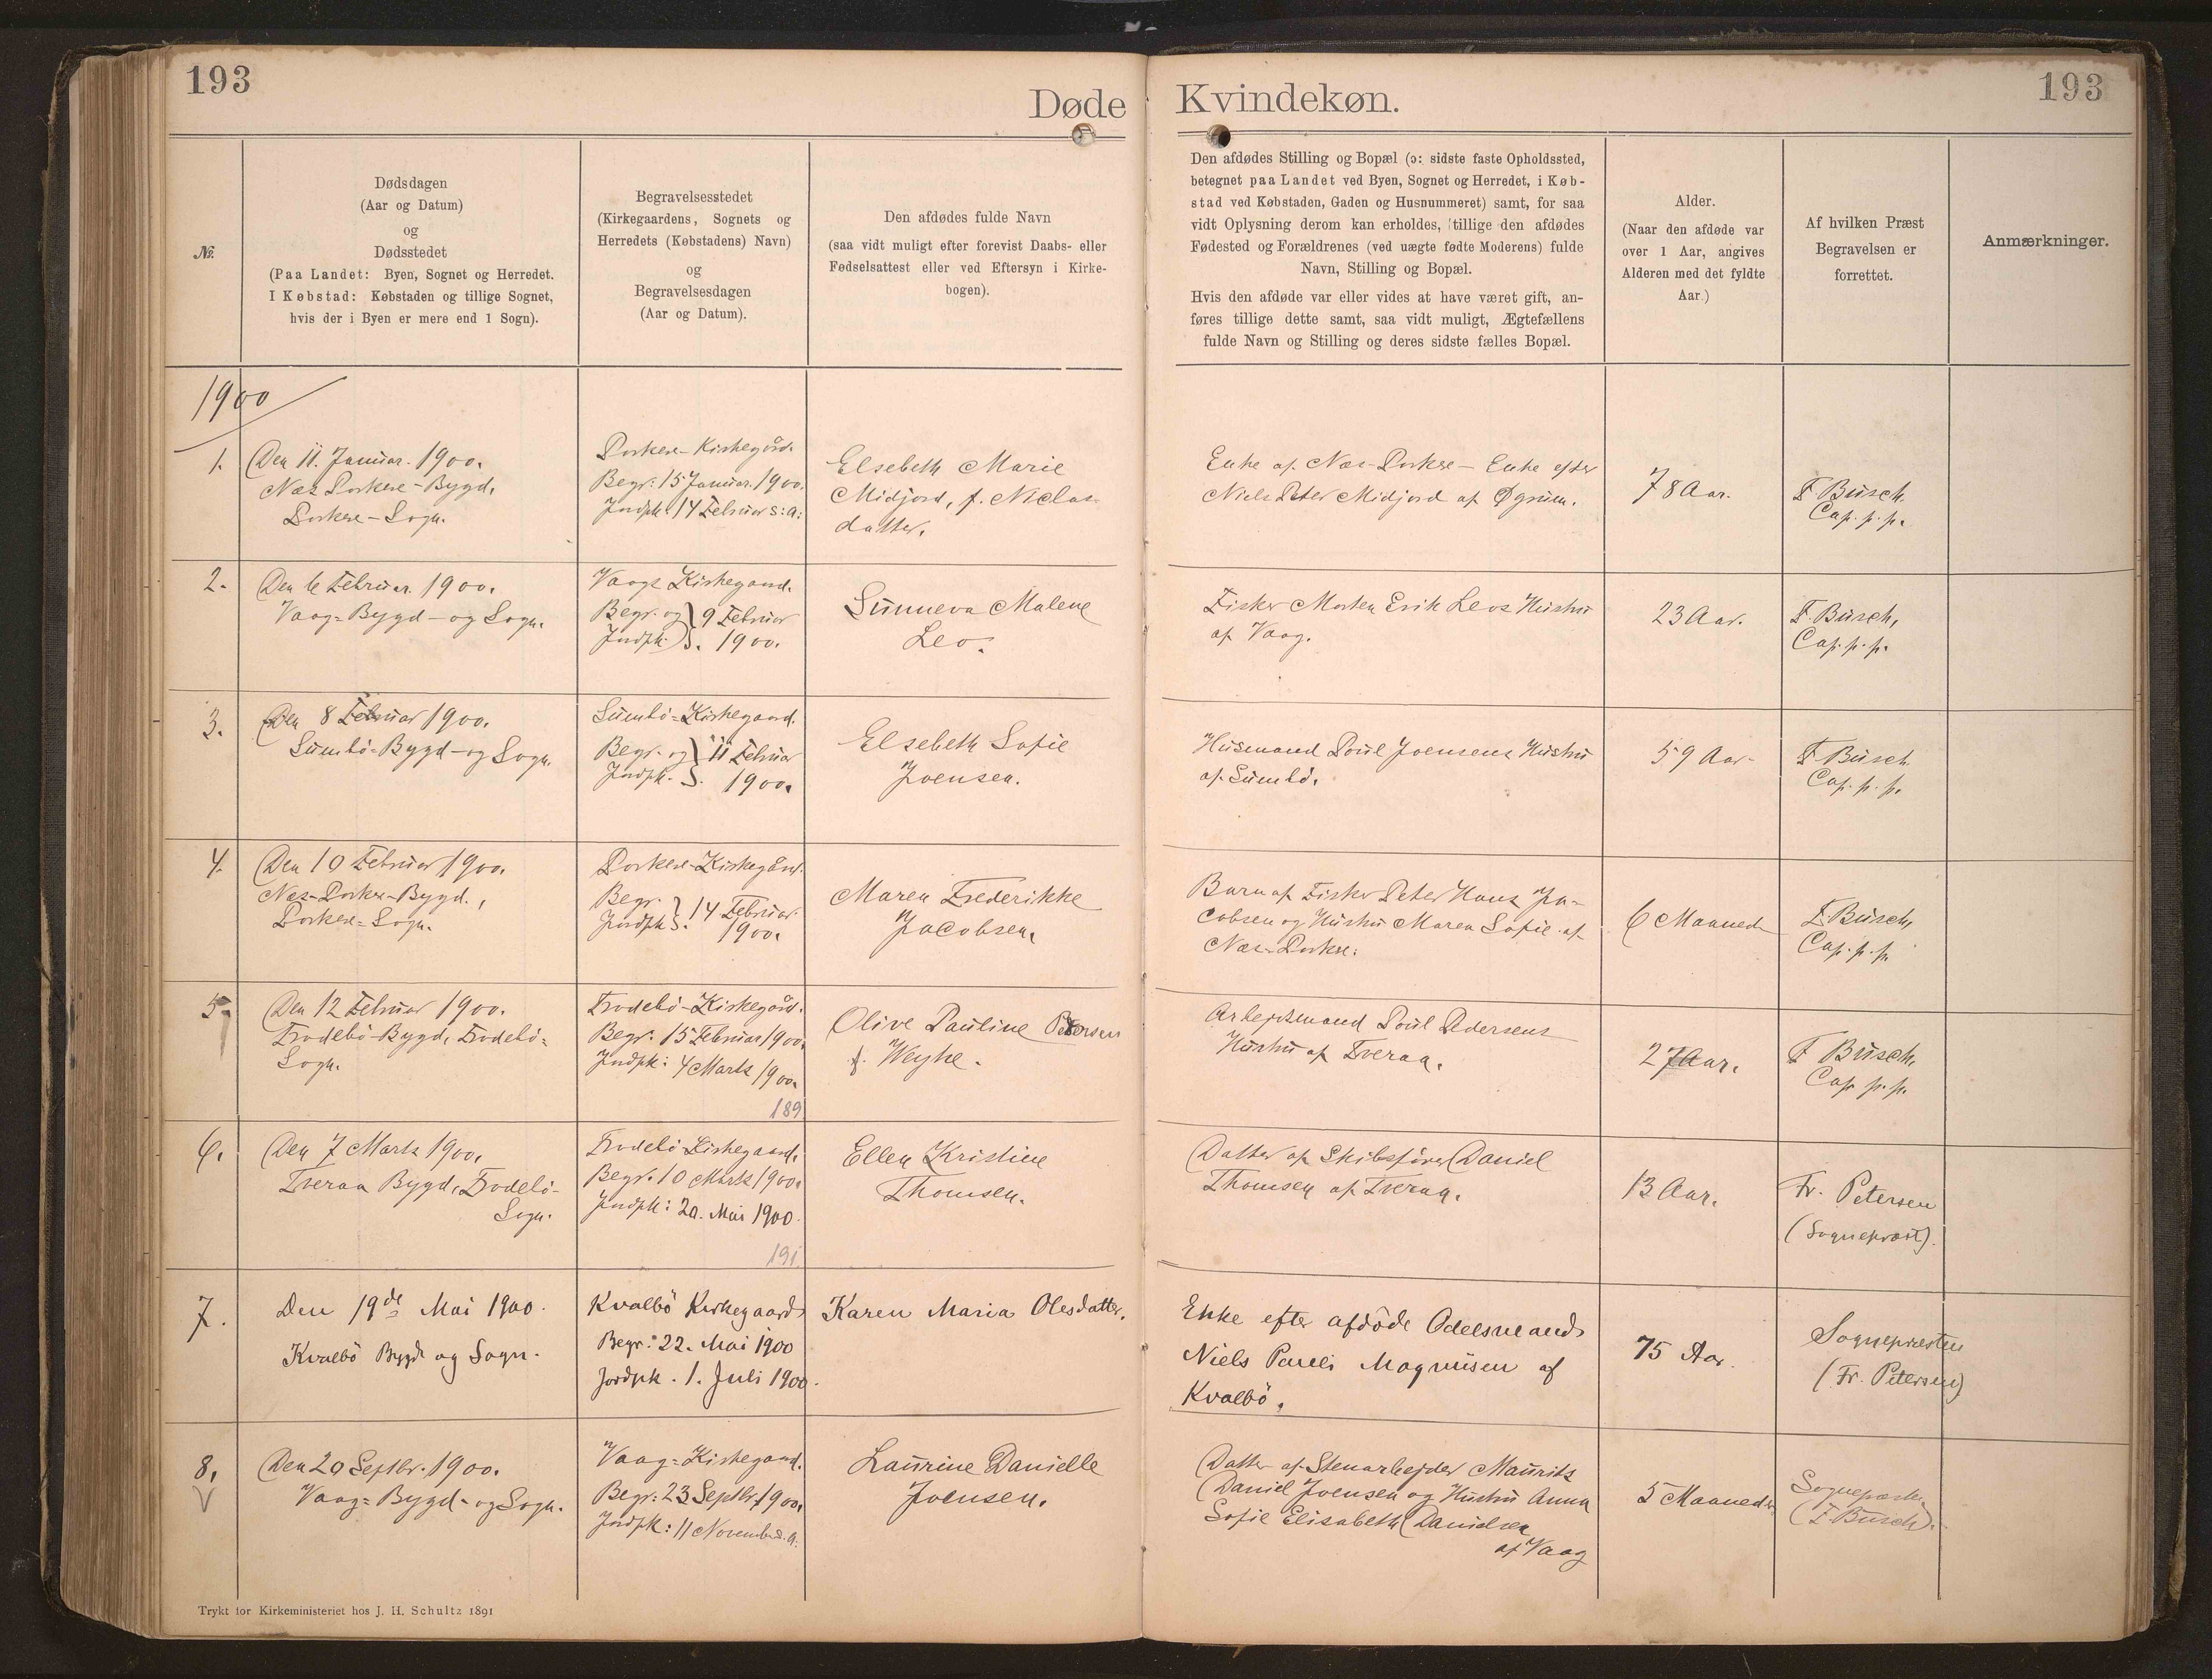 193
Døde
Kvindekøn.
193
№.
Dødsdagen
(Aar og Datum)
og
Dødsstedet
(Paa Landet: Byen, Sognet og Herredet.
I Købstad: Købstaden og tillige Sognet,
hvis der i Byen er mere end 1 Sogn).
Begravelsesstedet
(Kirkegaardens, Sognets og
Herredets (Købstadens) Navn)
og
Begravelsesdagen
(Aar og Datum).
Den afdødes fulde Navn
(saa vidt muligt efter forevist Daabs- eller
Fødselsattest eller ved Eftersyn i Kirke-
bogen).
Den afdødes Stilling og Bopæl (ɔ: sidste faste Opholdssted,
betegnet paa Landet ved Byen, Sognet og Herredet, i Køb-
stad ved Købstaden, Gaden og Husnummeret) samt, for saa
vidt Oplysning derom kan erholdes, tillige den afdødes
Fødested og Forældrenes (ved uægte fødte Moderens) fulde
Navn, Stilling og Bopæl.
Hvis den afdøde var eller vides at have været gift, an-
føres tillige dette samt, saa vidt muligt, Ægtefællens
fulde Navn og Stilling og deres sidste fælles Bopæl.
Alder.
(Naar den afdøde var
over 1 Aar, angives
Alderen med det fyldte
Aar.)
Af hvilken Præst
Begravelsen er
forrettet.
Anmærkninger.
1900
1.
Den 11. Januar. 1900.
Næs Porkere-Bygd,
Porkere-Sogn.
Porkere-Kirkegård.
Begr: 15 Januar. 1900.
Jordpk: 14 Februar s: a:
Elsebeth Marie
Midjord, f. Niclas-
datter.
Enke af Næs-Porkere - Enke efter
Niels Peter Midjord af Øgrum.
78 Aar.
F. Busch.
Cap. p. p.
2.
Den 6 Februar. 1900.
Vaag=Bygd- og Sogn.
Vaags Kirkegaard.
Begr. og } 9 Februar
Jordpk. } 1900.
Sunneva Malene
Leo.
Fisker Morten Erik Leos Hustru
af Vaag.
23 Aar.
F. Busch,
Cap. p. p.
3.
Den 8 Februar 1900.
Sumbö=Bygd- og Sogn.
Sumbö=Kirkegaard.
Begr. og } 11 Februar
Jordpk. } 1900.
Elsebeth Sofie
Joensen.
Husmand Poul Joensens Hustru
af Sumbö.
59 Aar.
F. Busch
Cap. p. p.
4.
Den 10 Februar 1900.
Næs-Porkere-Bygd.,
Porkere=Sogn.
Porkere-Kirkegård.
Begr. } 14 Februar
Jordpk } 1900.
Maren Frederikke
Jacobsen.
Barn af Fisker Peter Hans Ja-
cobsen og Hustru Maren Sofie af
Næs-Porkere.
6 Maaned
F. Busch,
Cap. p. p.
5.
Den 12 Februar 1900.
Frodebö-Bygd, Frodebö=
Sogn.
Frodebö-Kirkegård.
Begr. 15 Februar 1900.
Jordpk: 4 Marts 1900.
189
Olive Pauline Petersen
f. Weyhe.
Arbejdsmand Poul Pedersens
Hustru af Tveraa.
27 Aar.
F. Busch,
Cap. p. p.
6.
Den 7 Marts 1900.
Tveraa Bygd, Frodebö-
Sogn.
Frodebö Kirkegaard.
Begr. 10 Marts 1900.
Jordpk: 20. Mai 1900.
191
Ellen Kristine
Thomsen.
Datter af Skibsförer Daniel
Thomsen af Tveraa.
13 Aar.
Fr. Petersen
(Sognepræst).
7.
Den 19de Mai 1900.
Kvalbö Bygd og Sogn.
Kvalbö Kirkegaard
Begr: 22. Mai 1900
Jordpk. 1. Juli 1900.
Karen Maria Olesdatter.
Enke efter afdöde Odelsmand
Niels Pauli Magnusen af
Kvalbö.
75 Aar.
Sognepræsten
(Fr. Petersen)
8.
Den 20 Septbr. 1900.
Vaag=Bygd- og Sogn.
Vaag=Kirkegaard.
Begr: 23 Septbr. 1900.
Jordpk: 11 November s. a.
Laurine Danielle
Joensen.
Datter af Stenarbejder Maurits
Daniel Joensen og Hustru Anna
Sofie Elisabeth Danielsen
af Vaag
5 Maaneder
Sognepræsten
(F. Busch).
Trykt for Kirkeministeriet hos J. H. Schultz 1891